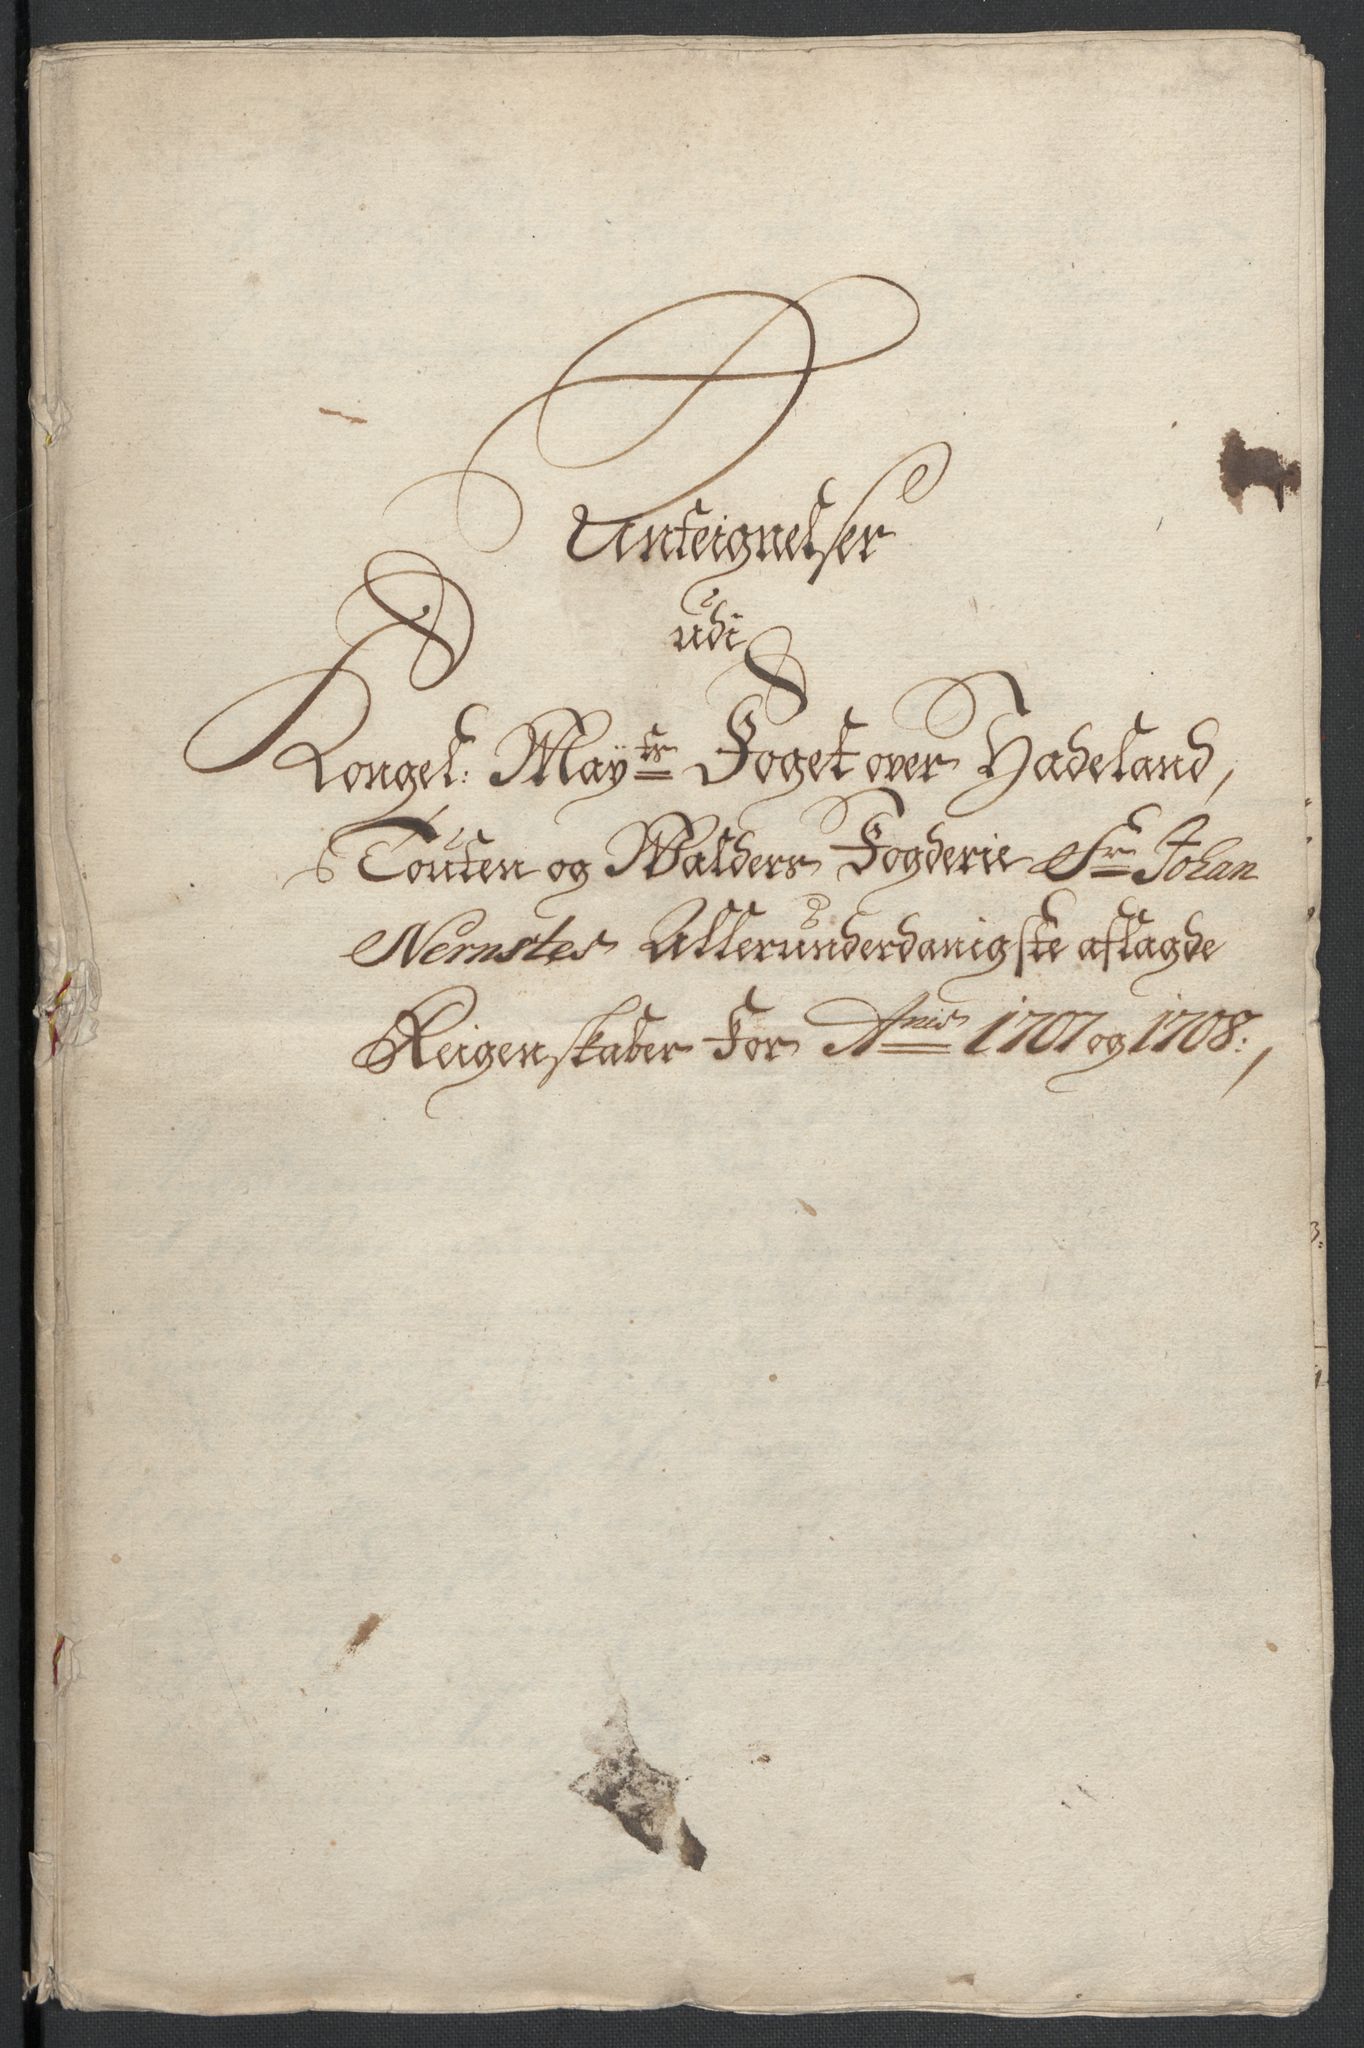 Anteignelser
udi
Kongel: May:ts Foget over Hadeland,
Toten og Walders Fogderie Sr Johan
Nernstes Allerunderdanigste aflagde
Reigenskaber for Anis 1707 og 1708:,